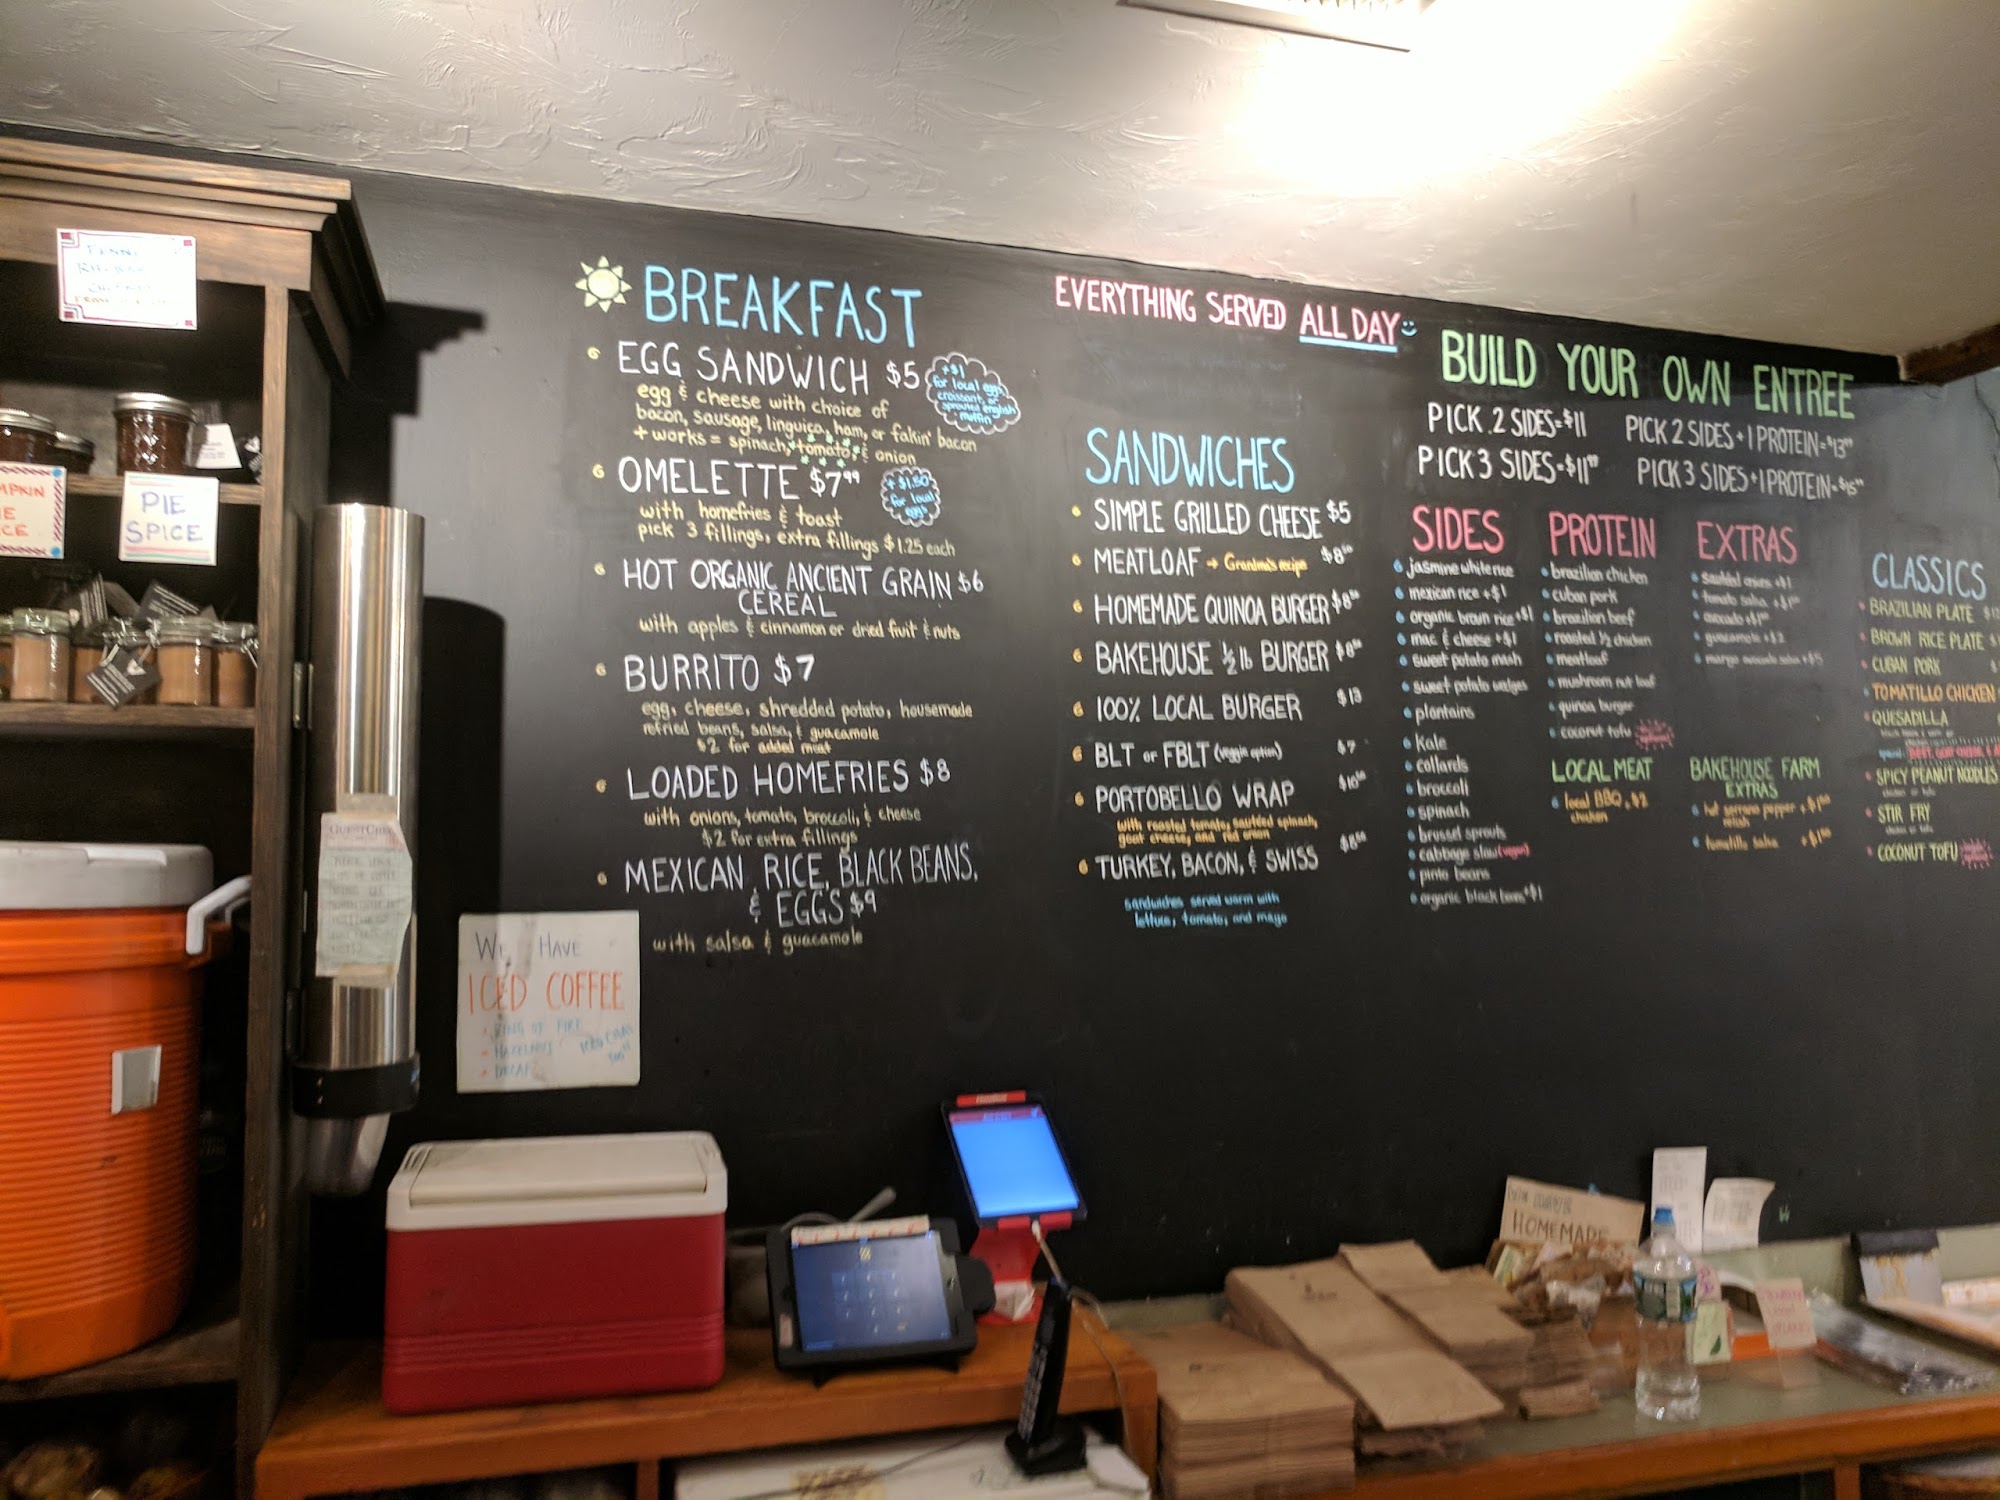 BREAKFAST
EGG SANDWICH $5
+$1
for local eggs,
croissant, or
sprouted english
muffin
egg & cheese with choice of
bacon, sausage, linguica, ham, or fakin' bacon
+ works = spinach, tomato, & onion
OMELETTE $7.99
+ $1.50
for local
eggs
with homefries & toast
pick 3 fillings, extra fillings $1.25 each
HOT ORGANIC ANCIENT GRAIN $6
CEREAL
with apples & cinnamon or dried fruit & nuts
BURRITO $7
egg, cheese, shredded potato, housemade
refried beans, salsa, & guacamole
$2 for added meat
LOADED HOMEFRIES $8
with onions, tomato, broccoli, & cheese
$2 for extra fillings
MEXICAN RICE, BLACK BEANS,
& EGGS $9
with salsa & guacamole
EVERYTHING SERVED ALL DAY
SANDWICHES
SIMPLE GRILLED CHEESE $5
MEATLOAF → Grandma's recipe
HOMEMADE QUINOA BURGER
BAKEHOUSE ½ lb BURGER
100% LOCAL BURGER $13
BLT or FBLT (veggie option) $7
PORTOBELLO WRAP
with roasted tomato, sautéed spinach,
goat cheese, and red onion
TURKEY, BACON, & SWISS
sandwiches served warm with
lettuce, tomato, and mayo
BUILD YOUR OWN ENTREE
PICK 2 SIDES=$11
PICK 2 SIDES + 1 PROTEIN=
PICK 3 SIDES=
PICK 3 SIDES + 1 PROTEIN=
SIDES
jasmine white rice
mexican rice +$1
organic brown rice +$1
mac & cheese +$1
sweet potato mash
sweet potato wedges
plantains
kale
collards
broccoli
spinach
brussel sprouts
cabbage slaw (vegan)
pinto beans
organic black beans +$1
PROTEIN
brazilian chicken
cuban pork
brazilian beef
roasted ½ chicken
meatloaf
mushroom nut loaf
quinoa burger
coconut tofu
LOCAL MEAT
local BBQ +$2
chicken
EXTRAS
sautéed onions +$1
tomato salsa
avocado
guacamole +$2
mango avocado salsa +$5
BAKEHOUSE FARM
EXTRAS
hot serrano pepper
relish
tomatillo salsa
CLASSICS
BRAZILIAN PLATE
BROWN RICE PLATE
CUBAN PORK
TOMATILLO CHICKEN
QUESADILLA
SPICY PEANUT NOODLES
chicken or tofu
STIR FRY
chicken or tofu
COCONUT TOFU
PIE
SPICE
WE HAVE
ICED COFFEE
RING OF FIRE
HAZELNUT
DECAF
GUEST CHECK
HOMEMADE